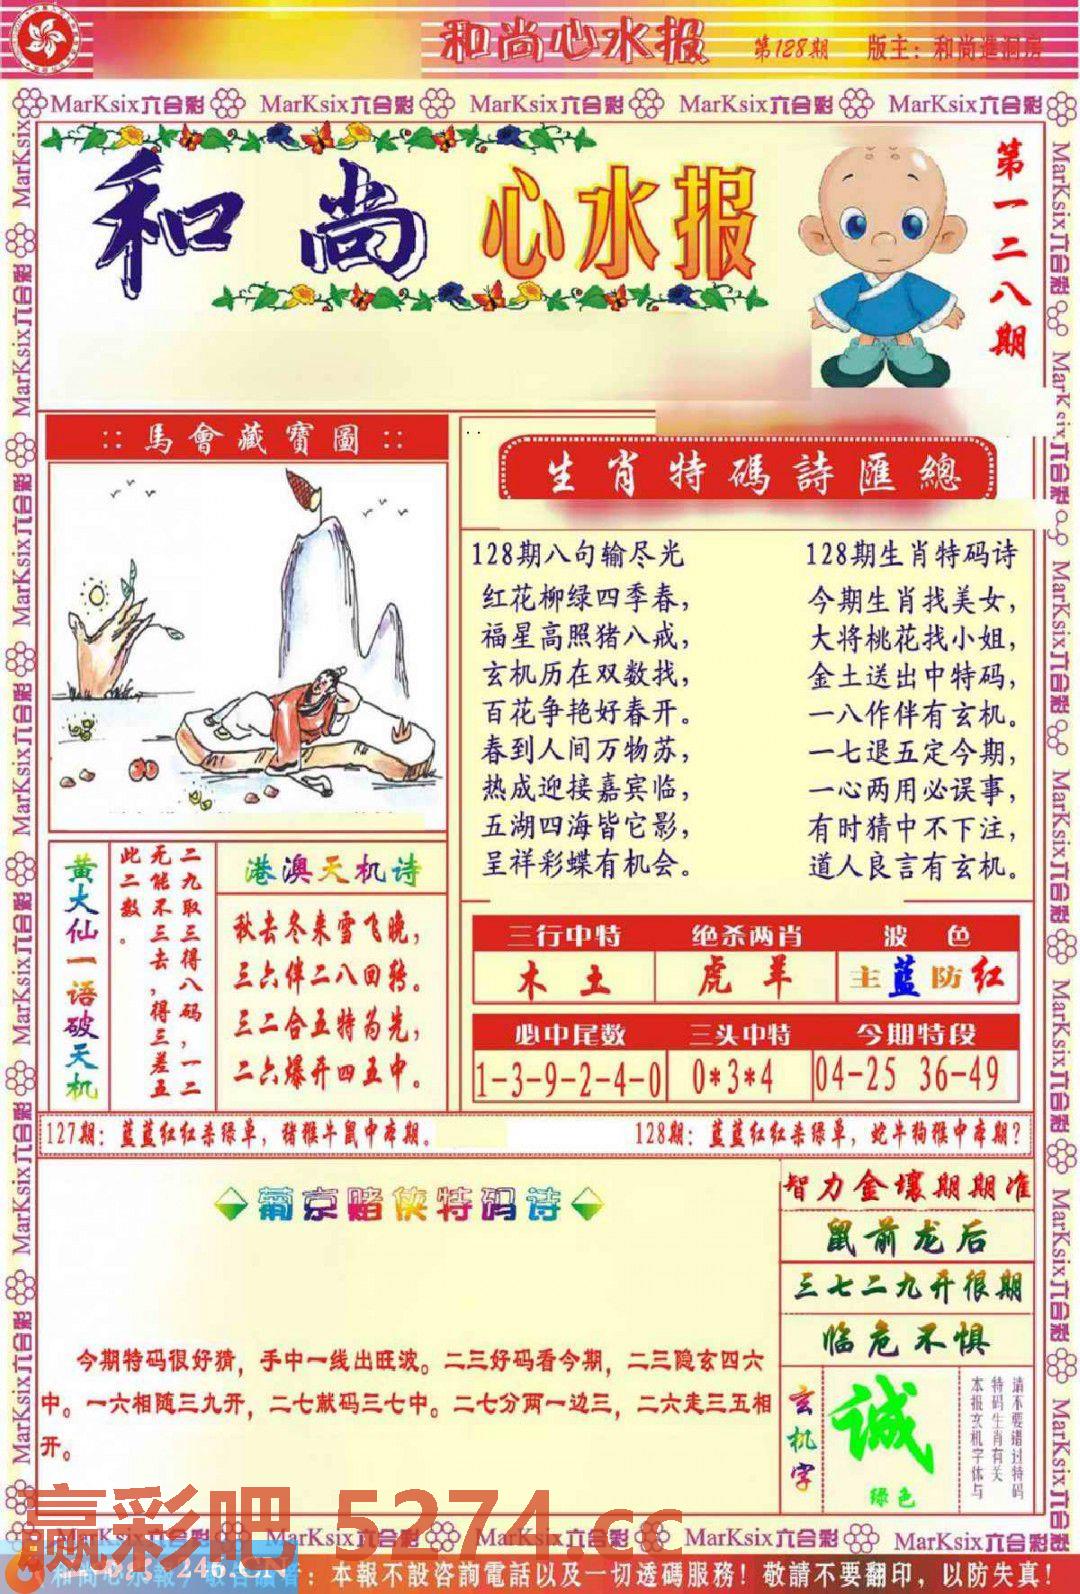 和尚心水报 第128期 版主：和尚進洞房
MarKsix六合彩 MarKsix六合彩 MarKsix六合彩 MarKsix六合彩 MarKsix六合彩
和尚 心水报
第一二八期
::馬會藏寶圖::
生肖特碼詩匯總
128期八句输尽光
红花柳绿四季春，
福星高照猪八戒，
玄机历在双数找，
百花争艳好春开。
春到人间万物苏，
热成迎接嘉宾临，
五湖四海皆它影，
呈祥彩蝶有机会。
128期生肖特码诗
今期生肖找美女，
大将桃花找小姐，
金土送出中特码，
一八作伴有玄机。
一七退五定今期，
一心两用必误事，
有时猜中不下注，
道人良言有玄机。
黄大仙一语破天机
二九取三得八码，一二
无能不三去，得三差五
此二数。
港澳天机诗
秋去冬来雪飞晚，
三六伴二八回转。
三二合五特为先，
二六爆开四五中。
三行中特 绝杀两肖 波色
木土 虎羊 主蓝防红
必中尾数 三头中特 今期特段
1-3-9-2-4-0 0*3*4 04-25 36-49
127期：蓝蓝红红杀绿单，猪猴牛鼠中本期。
128期：蓝蓝红红杀绿单，蛇牛狗猴中本期？
葡京赌侠特码诗
今期特码很好猜，手中一线出旺波。二三好码看今期，二三隐玄四六
中。一六相随三九开，二七献码三七中。二七分两一边三，二六走三五相
开。
智力金壤期期准
鼠前龙后
三七二九开很期
临危不惧
玄机字
诚
绿色
请不要错过特码
特码生肖有关
本报玄机字体与
赢彩吧 5274.cc
MarKsix六合彩 MarKsix六合彩 MarKsix六合彩 MarKsix六合彩
246.CN
：本報不設咨詢電話以及一切透碼服務！敬請不要翻印，以防失真！